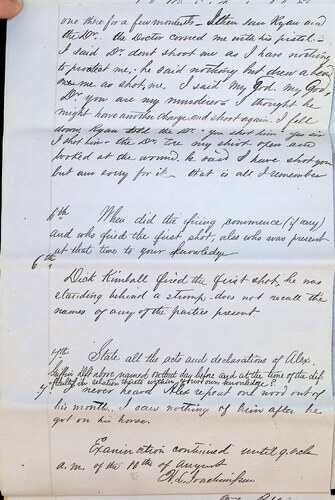 one there for a few moments. I then saw Ryan and
the Dr. the Doctor covered me with his pistol -
I said Dr. dont shoot me as I have nothing
to protect me; he said nothing but drew a bead
on me as shot me. I said My God, My God,
Dr you are my murderer I thought he
might have another charge and shoot again. I fell
down, Ryan told the Dr - you shot him, yes sir
I shot him - the Dr. tore my shirt open and
looked at the wound. he said I have shot you
but am sorry for it - that is all I remember
6th When did the firing commence (if any)
and who fired the first shot, also who was present
at that time to your knowledge
6th
Dick Kimball fired the first shot, he was
standing behind a stump, does not recall the
names of any of the parties present
7th State all the acts and declarations of Alex.
deft above named, on that day before and at the time of the dif-
ficulty in relation thereto within your own knowledge?
7 never heard Alex repeat one word out of
his mouth. I saw nothing of him after he
got on his horse.
Examination continued until 9 oclk
a.m. of the 10th of August